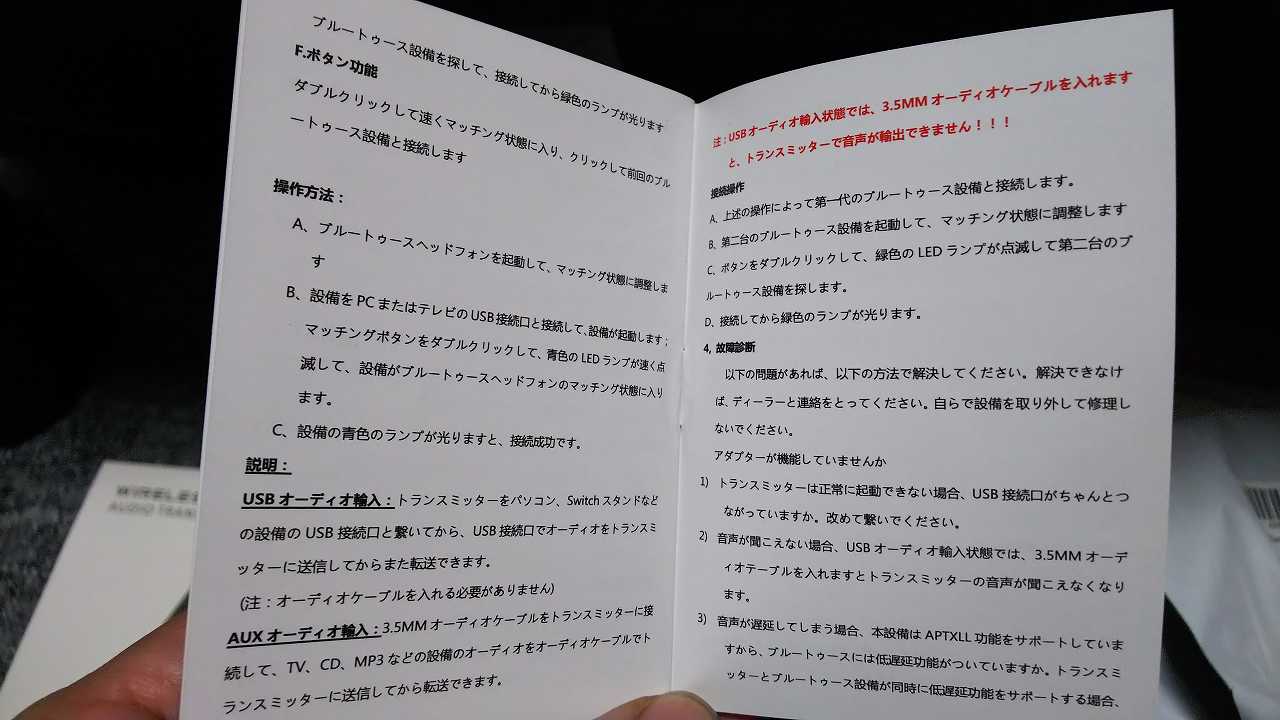 ブルートゥース設備を探して、接続してから緑色のランプが光ります
F.ボタン功能
ダブルクリックして速くマッチング状態に入り、クリックして前回のブル
ートゥース設備と接続します
操作方法：
A、ブルートゥースヘッドフォンを起動して、マッチング状態に調整しま
す
B、設備を PC またはテレビの USB 接続口と接続して、設備が起動します；
マッチングボタンをダブルクリックして、青色の LED ランプが速く点
滅して、設備がブルートゥースヘッドフォンのマッチング状態に入り
ます。
C、設備の青色のランプが光りますと、接続成功です。
説明：
USB オーディオ輸入：トランスミッターをパソコン、Switch スタンドなど
の設備の USB 接続口と繋いてから、USB 接続口でオーディオをトランスミ
ッターに送信してからまた転送できます。
(注：オーディオケーブルを入れる必要がありません)
AUX オーディオ輸入：3.5MM オーディオケーブルをトランスミッターに接
続して、TV、CD、MP3 などの設備のオーディオをオーディオケーブルでト
ランスミッターに送信してから転送できます。
注：USB オーディオ輸入状態では、3.5MM オーディオケーブルを入れます
と、トランスミッターで音声が輸出できません！！！
接続操作
A、上述の操作によって第一代のブルートゥース設備と接続します。
B、第二台のブルートゥース設備を起動して、マッチング状態に調整します
C、ボタンをダブルクリックして、緑色の LED ランプが点滅して第二台のブ
ルートゥース設備を探します。
D、接続してから緑色のランプが光ります。
4, 故障診断
以下の問題があれば、以下の方法で解決してください。解決できなけ
ば、ディーラーと連絡をとってください。自らで設備を取り外して修理し
ないでください。
アダプターが機能していませんか
1) トランスミッターは正常に起動できない場合、USB 接続口がちゃんとつ
ながっていますか。改めて繋いでください。
2) 音声が聞こえない場合、USB オーディオ輸入状態では、3.5MM オーデ
ィオテーブルを入れますとトランスミッターの音声が聞こえなくなり
ます。
3) 音声が遅延してしまう場合、本設備は APTXLL 功能をサポートしていま
すから、ブルートゥースには低遅延功能がついていますか。トランスミ
ッターとブルートゥース設備が同時に低遅延功能をサポートする場合、
WIRELES
AUDIO TRAN